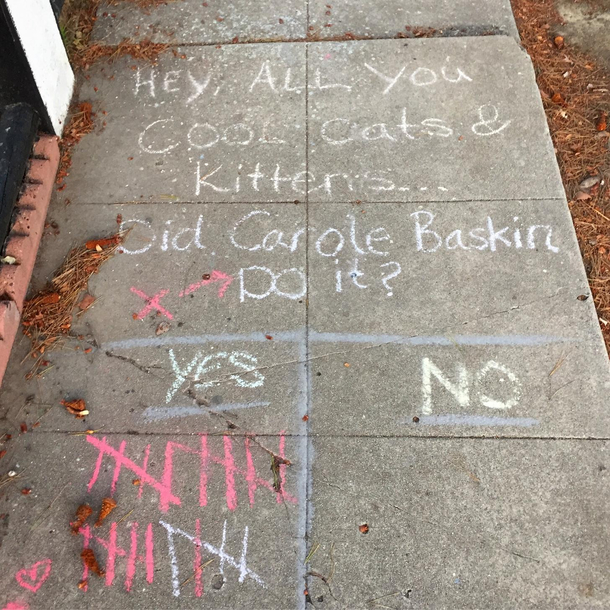 HEY, ALL YOU
COOL Cats &
Kittens...
Did Carole Baskin
DO it?
YES NO